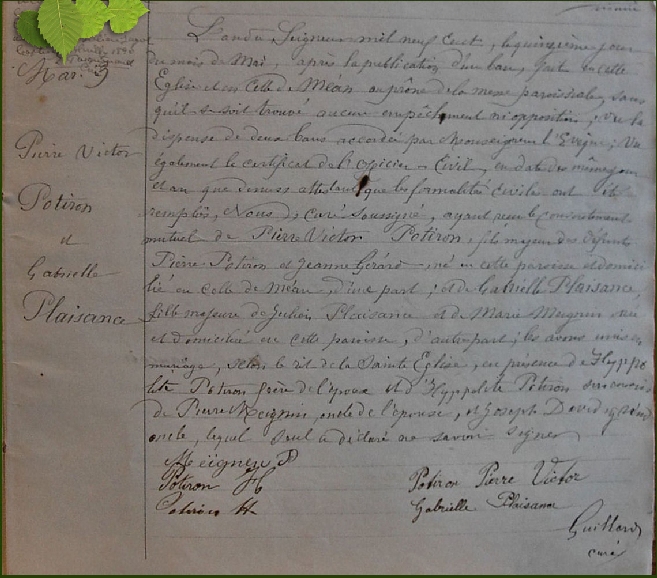 Mar. 3
Pierre Victor
Potiron
et
Gabrielle
Plaisance
L'an du Seigneur mil neuf cent, le quinzième jour
du mois de Mai, après la publication d'un ban, fait en cette
Eglise et en celle de Méan au prône de la messe paroissiale, sans
qu'il se soit trouvé aucun empêchement ni opposition; Vu la
dispense de deux bans accordée par Monseigneur l'Evêque; Vu
également le certificat de l'Officier Civil, en date des mêmes jour
et an que dessus attestant que les formalités civiles ont été
remplies, Nous curé soussigné, ayant reçu le consentement
mutuel de Pierre Victor Potiron, fils majeur des défunts
Pierre Potiron et Jeanne Gérard né en cette paroisse et domici
lié en celle de Méan, d'une part; et de Gabrielle Plaisance
fille majeure de Julien Plaisance et de Marie Meignen née
et domiciliée en cette paroisse, d'autre part; les avons unis en
mariage, selon le rit de la Sainte Eglise, en présence de Hyppo
lite Potiron frère de l'époux et d'Hyppolite Potiron
de Pierre Meignen, oncle de l'épouse, et Joseph David
oncle, lequel seul a déclaré ne savoir signer
Meignen P
Potiron H
Potiron H
Potiron Pierre Victor
Gabrielle Plaisance
Guillard
curé